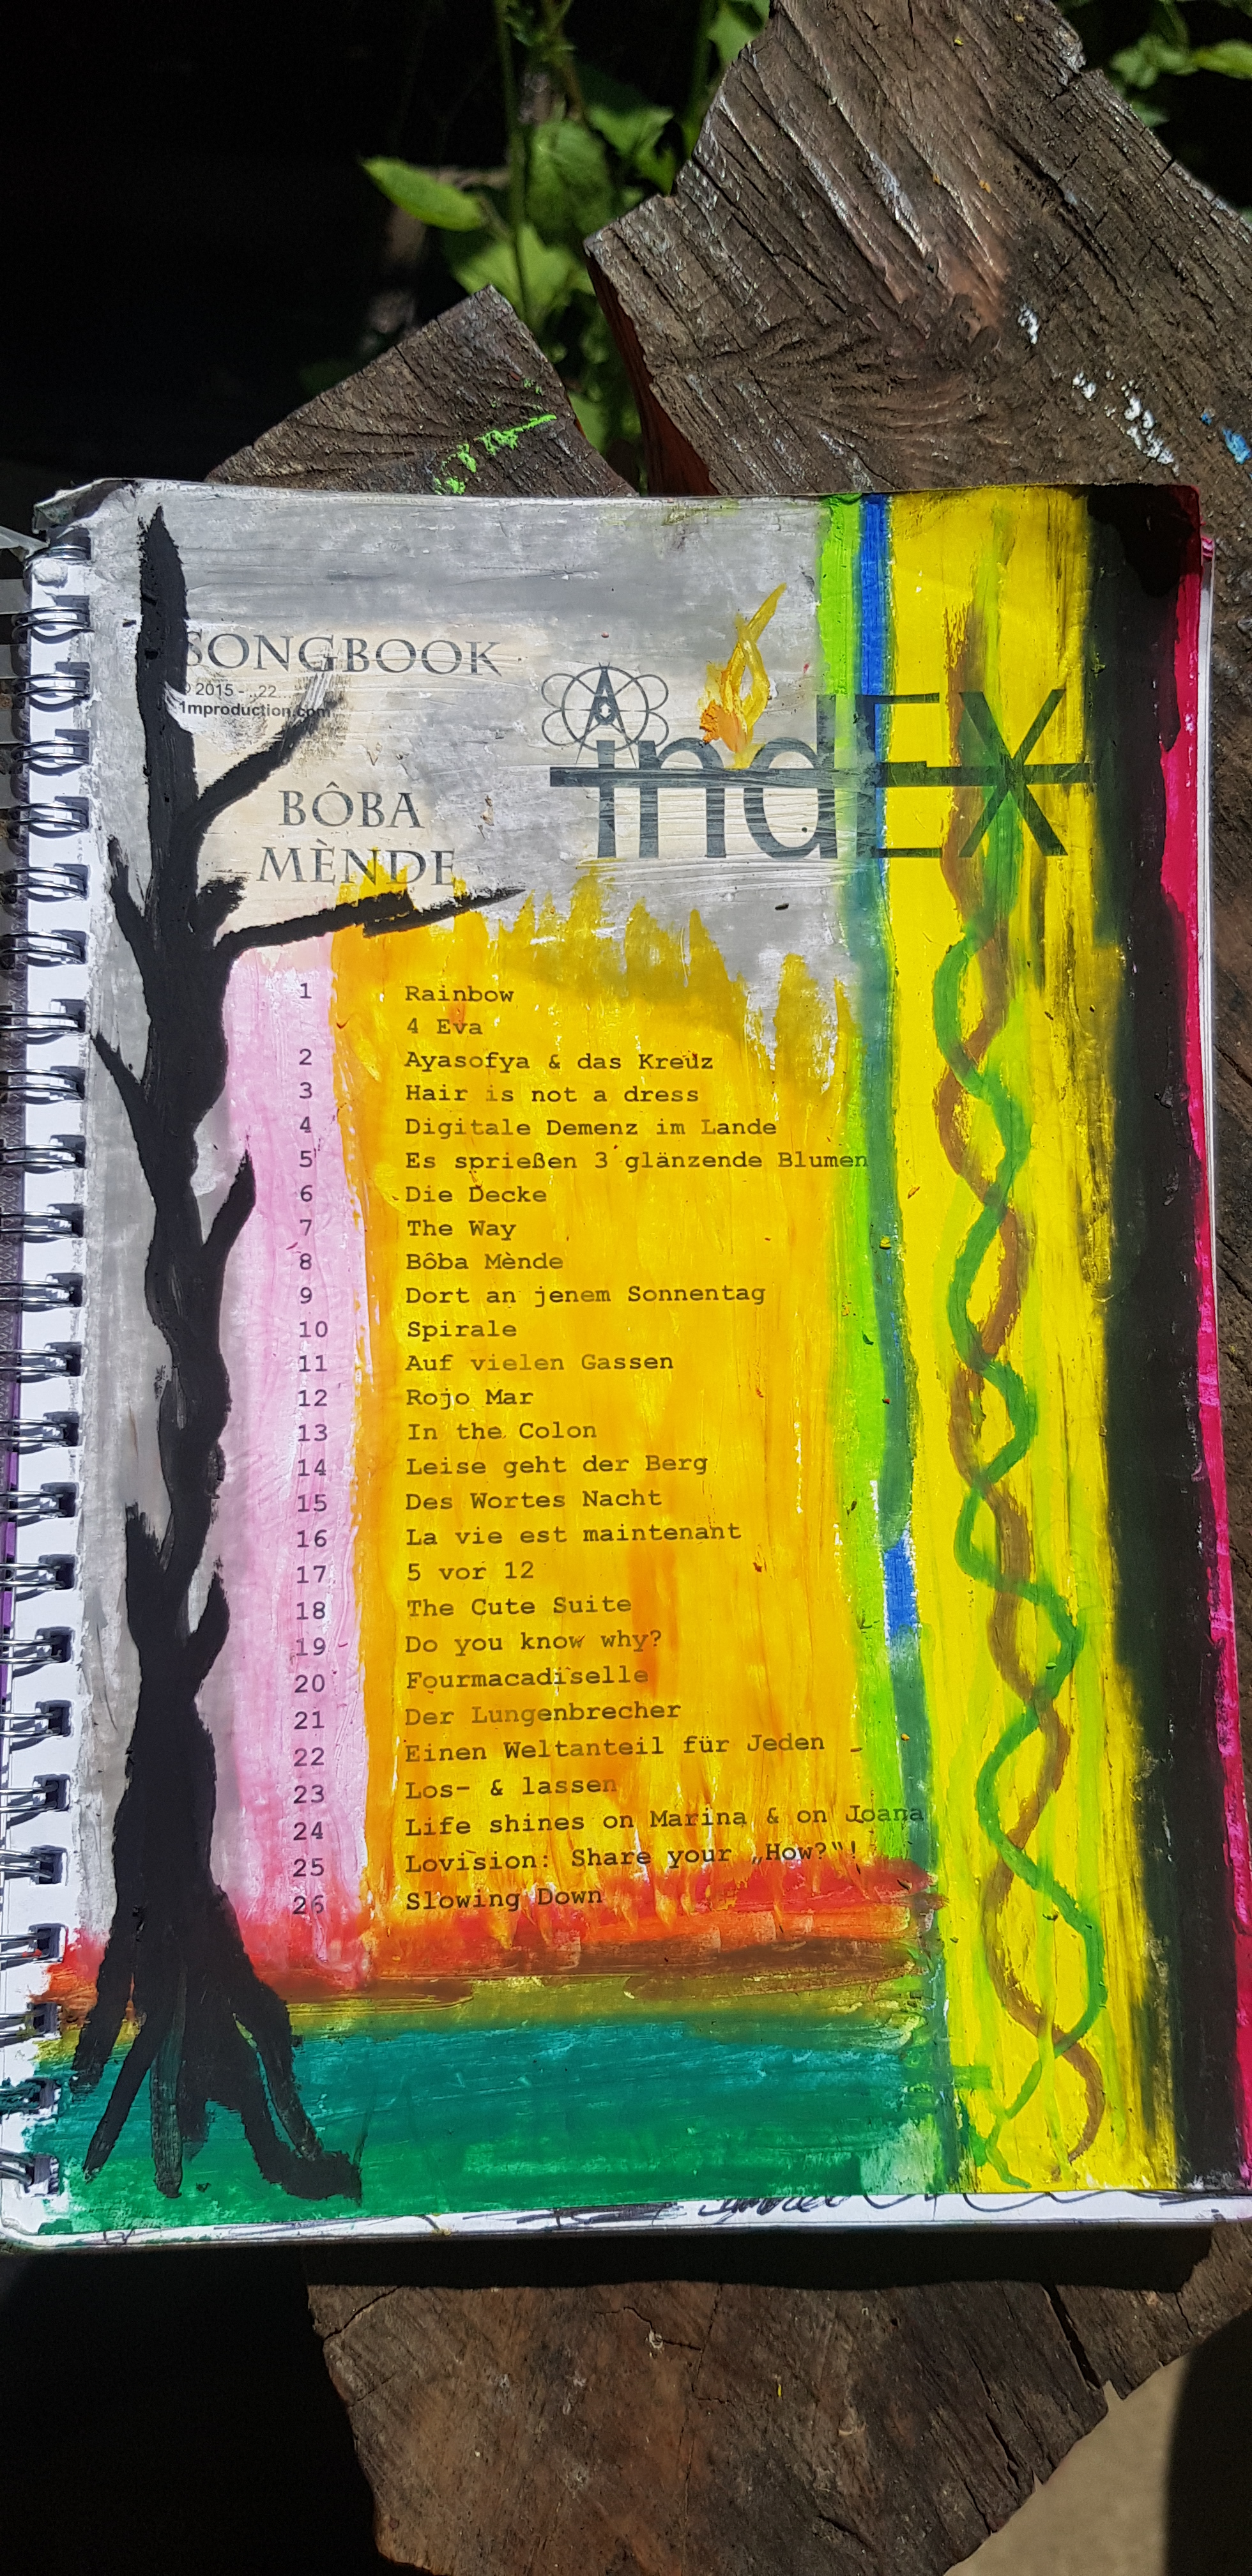 SONGBOOK
© 2015 - ..22...
1mproduction.com
indEX
BÔBA
MÈNDE
1 Rainbow
4 Eva
2 Ayasofya & das Kreuz
3 Hair is not a dress
4 Digitale Demenz im Lande
5 Es sprießen 3 glänzende Blumen
6 Die Decke
7 The Way
8 Bôba Mènde
9 Dort an jenem Sonnentag
10 Spirale
11 Auf vielen Gassen
12 Rojo Mar
13 In the Colon
14 Leise geht der Berg
15 Des Wortes Nacht
16 La vie est maintenant
17 5 vor 12
18 The Cute Suite
19 Do you know why?
20 Fourmacadiselle
21 Der Lungenbrecher
22 Einen Weltanteil für Jeden
23 Los- & lassen
24 Life shines on Marina & on Joana
25 Lovision: Share your „How?“!
26 Slowing Down